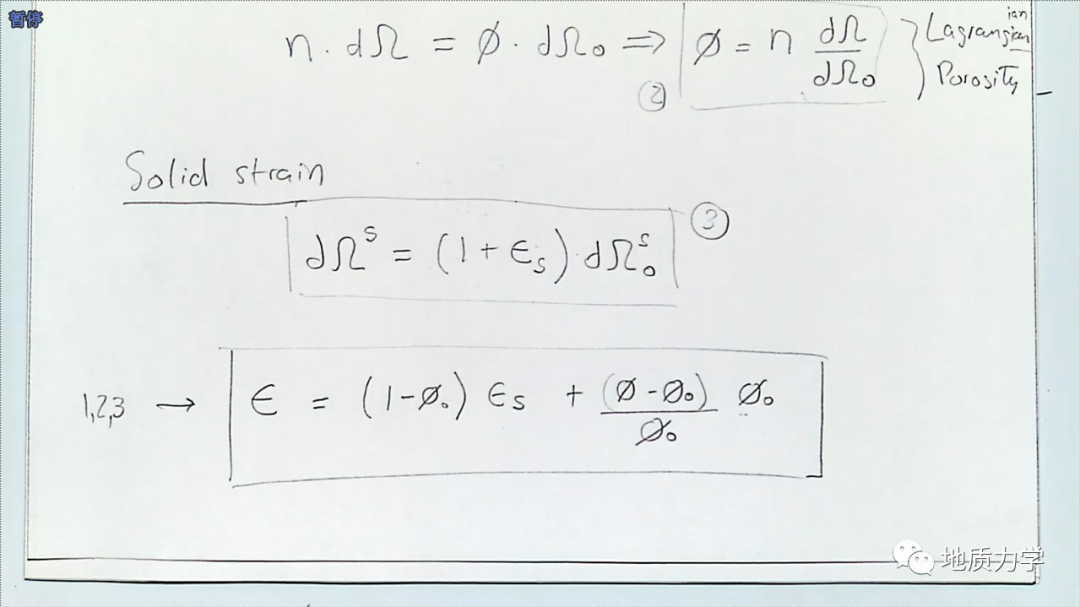 暂停
n · dΩ = ø · dΩ₀ ⇒ ø = n dΩ/dΩ₀ } Lagrangian
ian
② Porosity
Solid strain
dΩˢ = (1 + ϵₛ) · dΩ₀ˢ ③
1,2,3 → ϵ = (1-ø₀) ϵₛ + (ø-ø₀)/ø₀ ø₀
地质力学